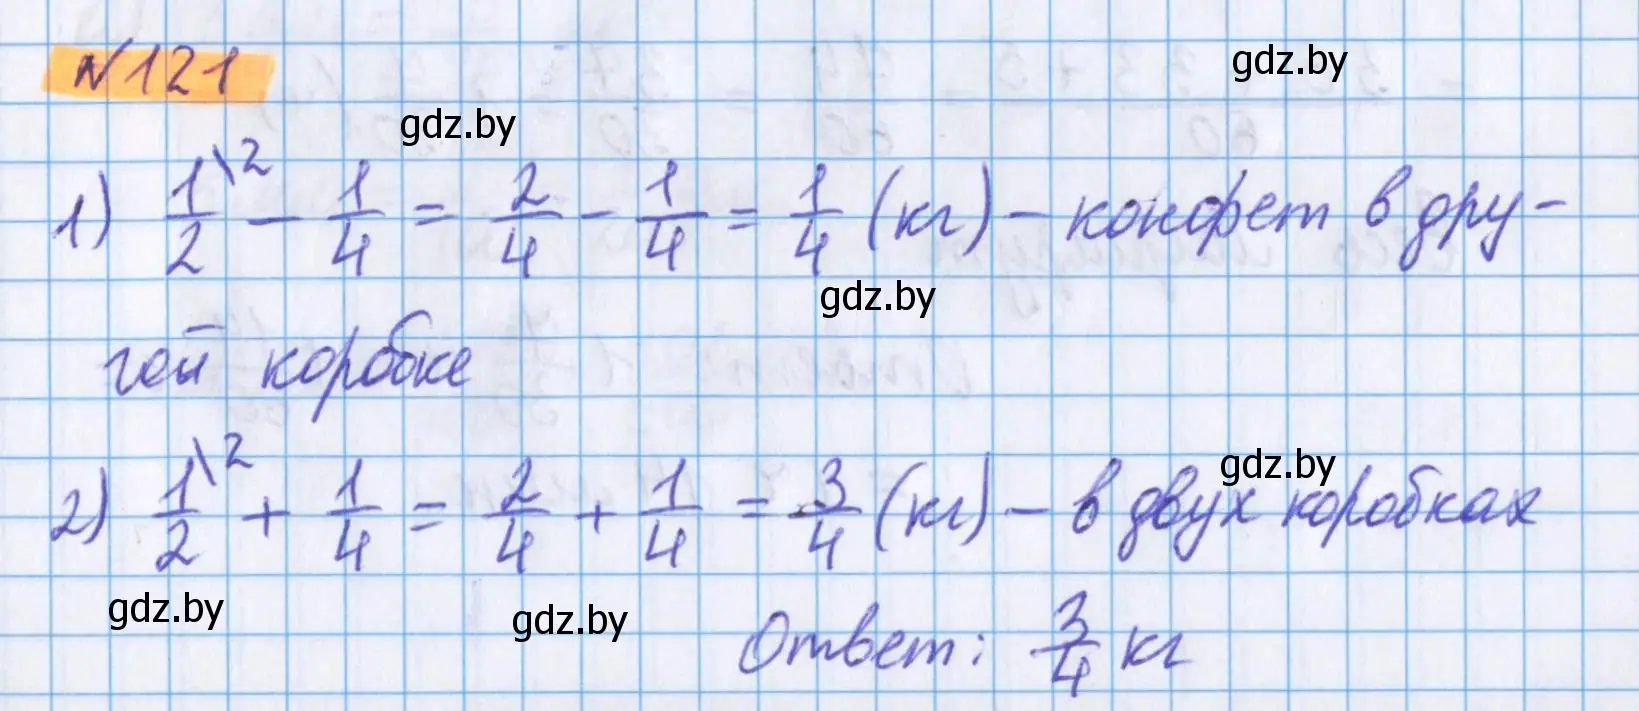 №121
gdz.by
gdz.by
1) 1/2\2 - 1/4 = 2/4 - 1/4 = 1/4 (кг) - конфет в дру-
gdz.by
гой коробке
gdz.by
2) 1/2\2 + 1/4 = 2/4 + 1/4 = 3/4 (кг) - в двух коробках
gdz.by
gdz.by
Ответ: 3/4 кг